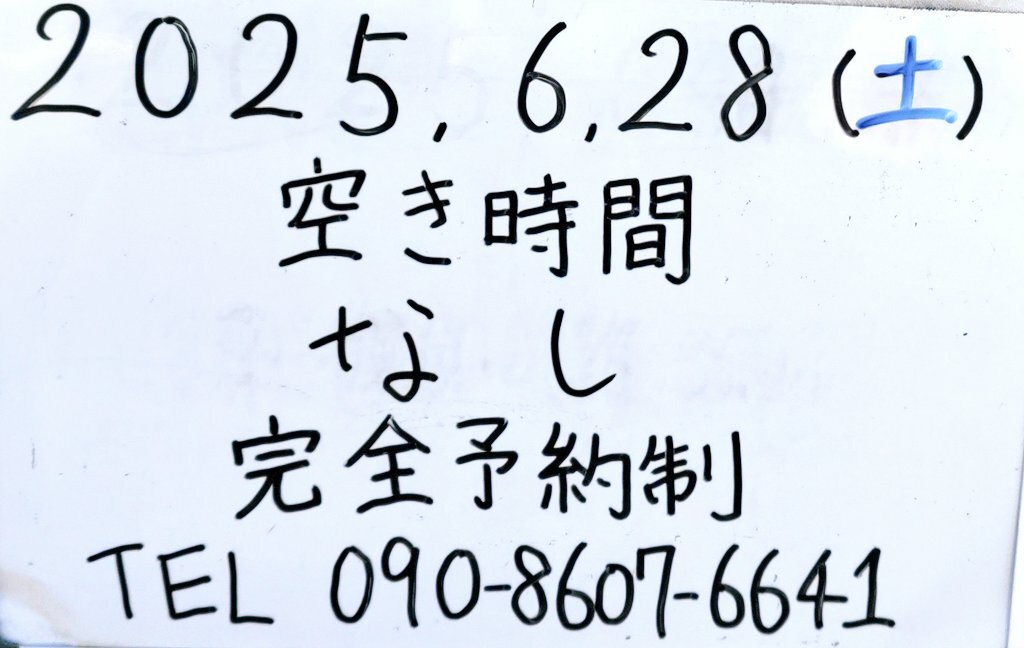 2025.6.28(土)
空き時間
なし
完全予約制
TEL 090-8607-6641